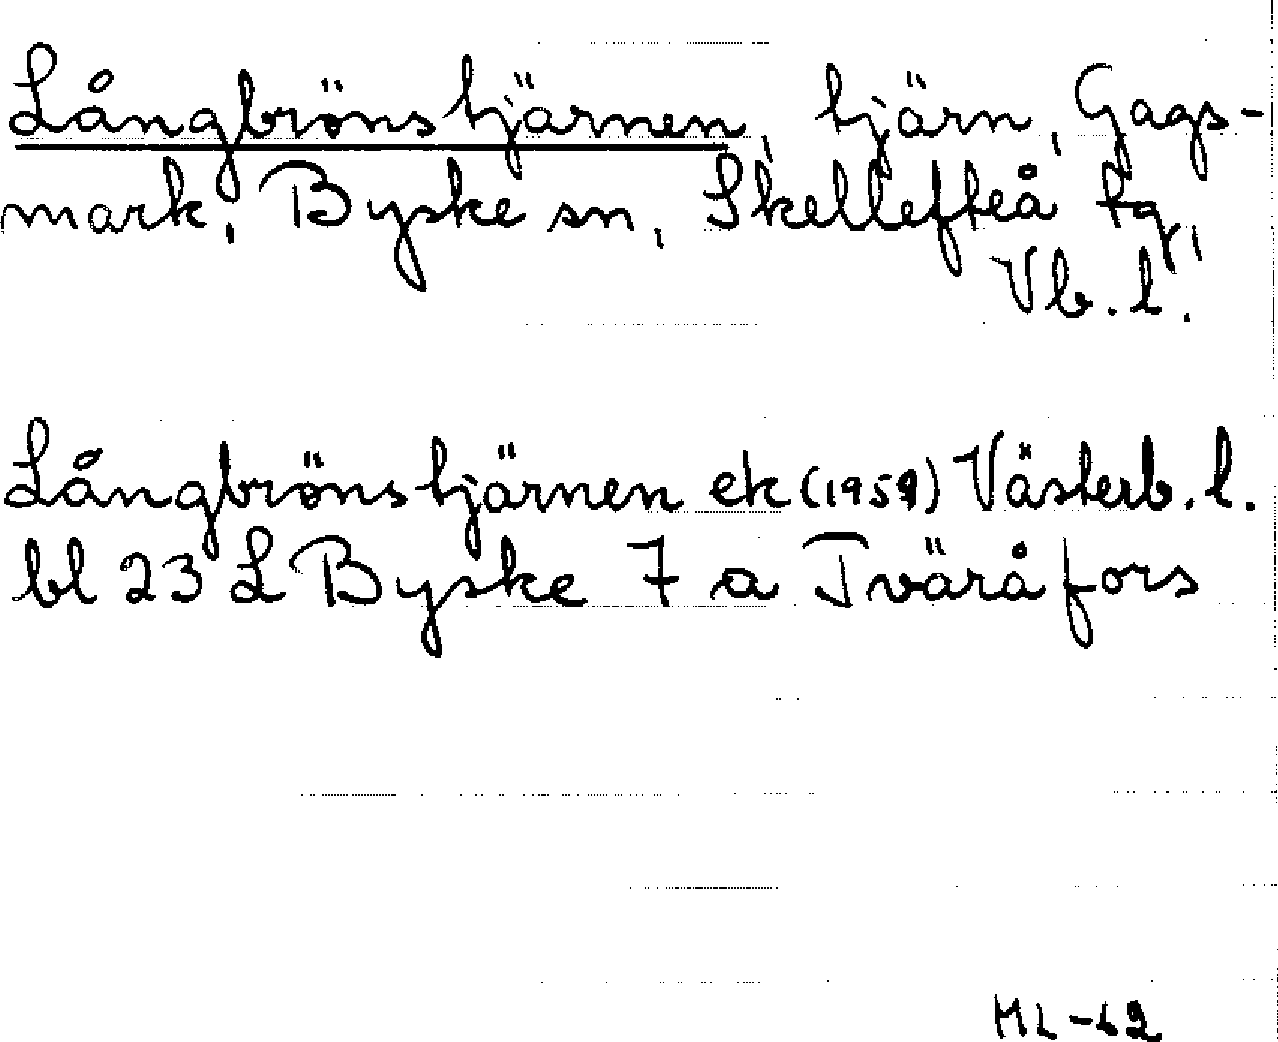 Långbrönstjärnen, tjärn, Gags-
mark, Byske sn, Skellefteå tg,
Vb. l.
Långbrönstjärnen ek (1959) Västerb. l.
bl 23 L Byske 7 a Tväråfors
ML -62